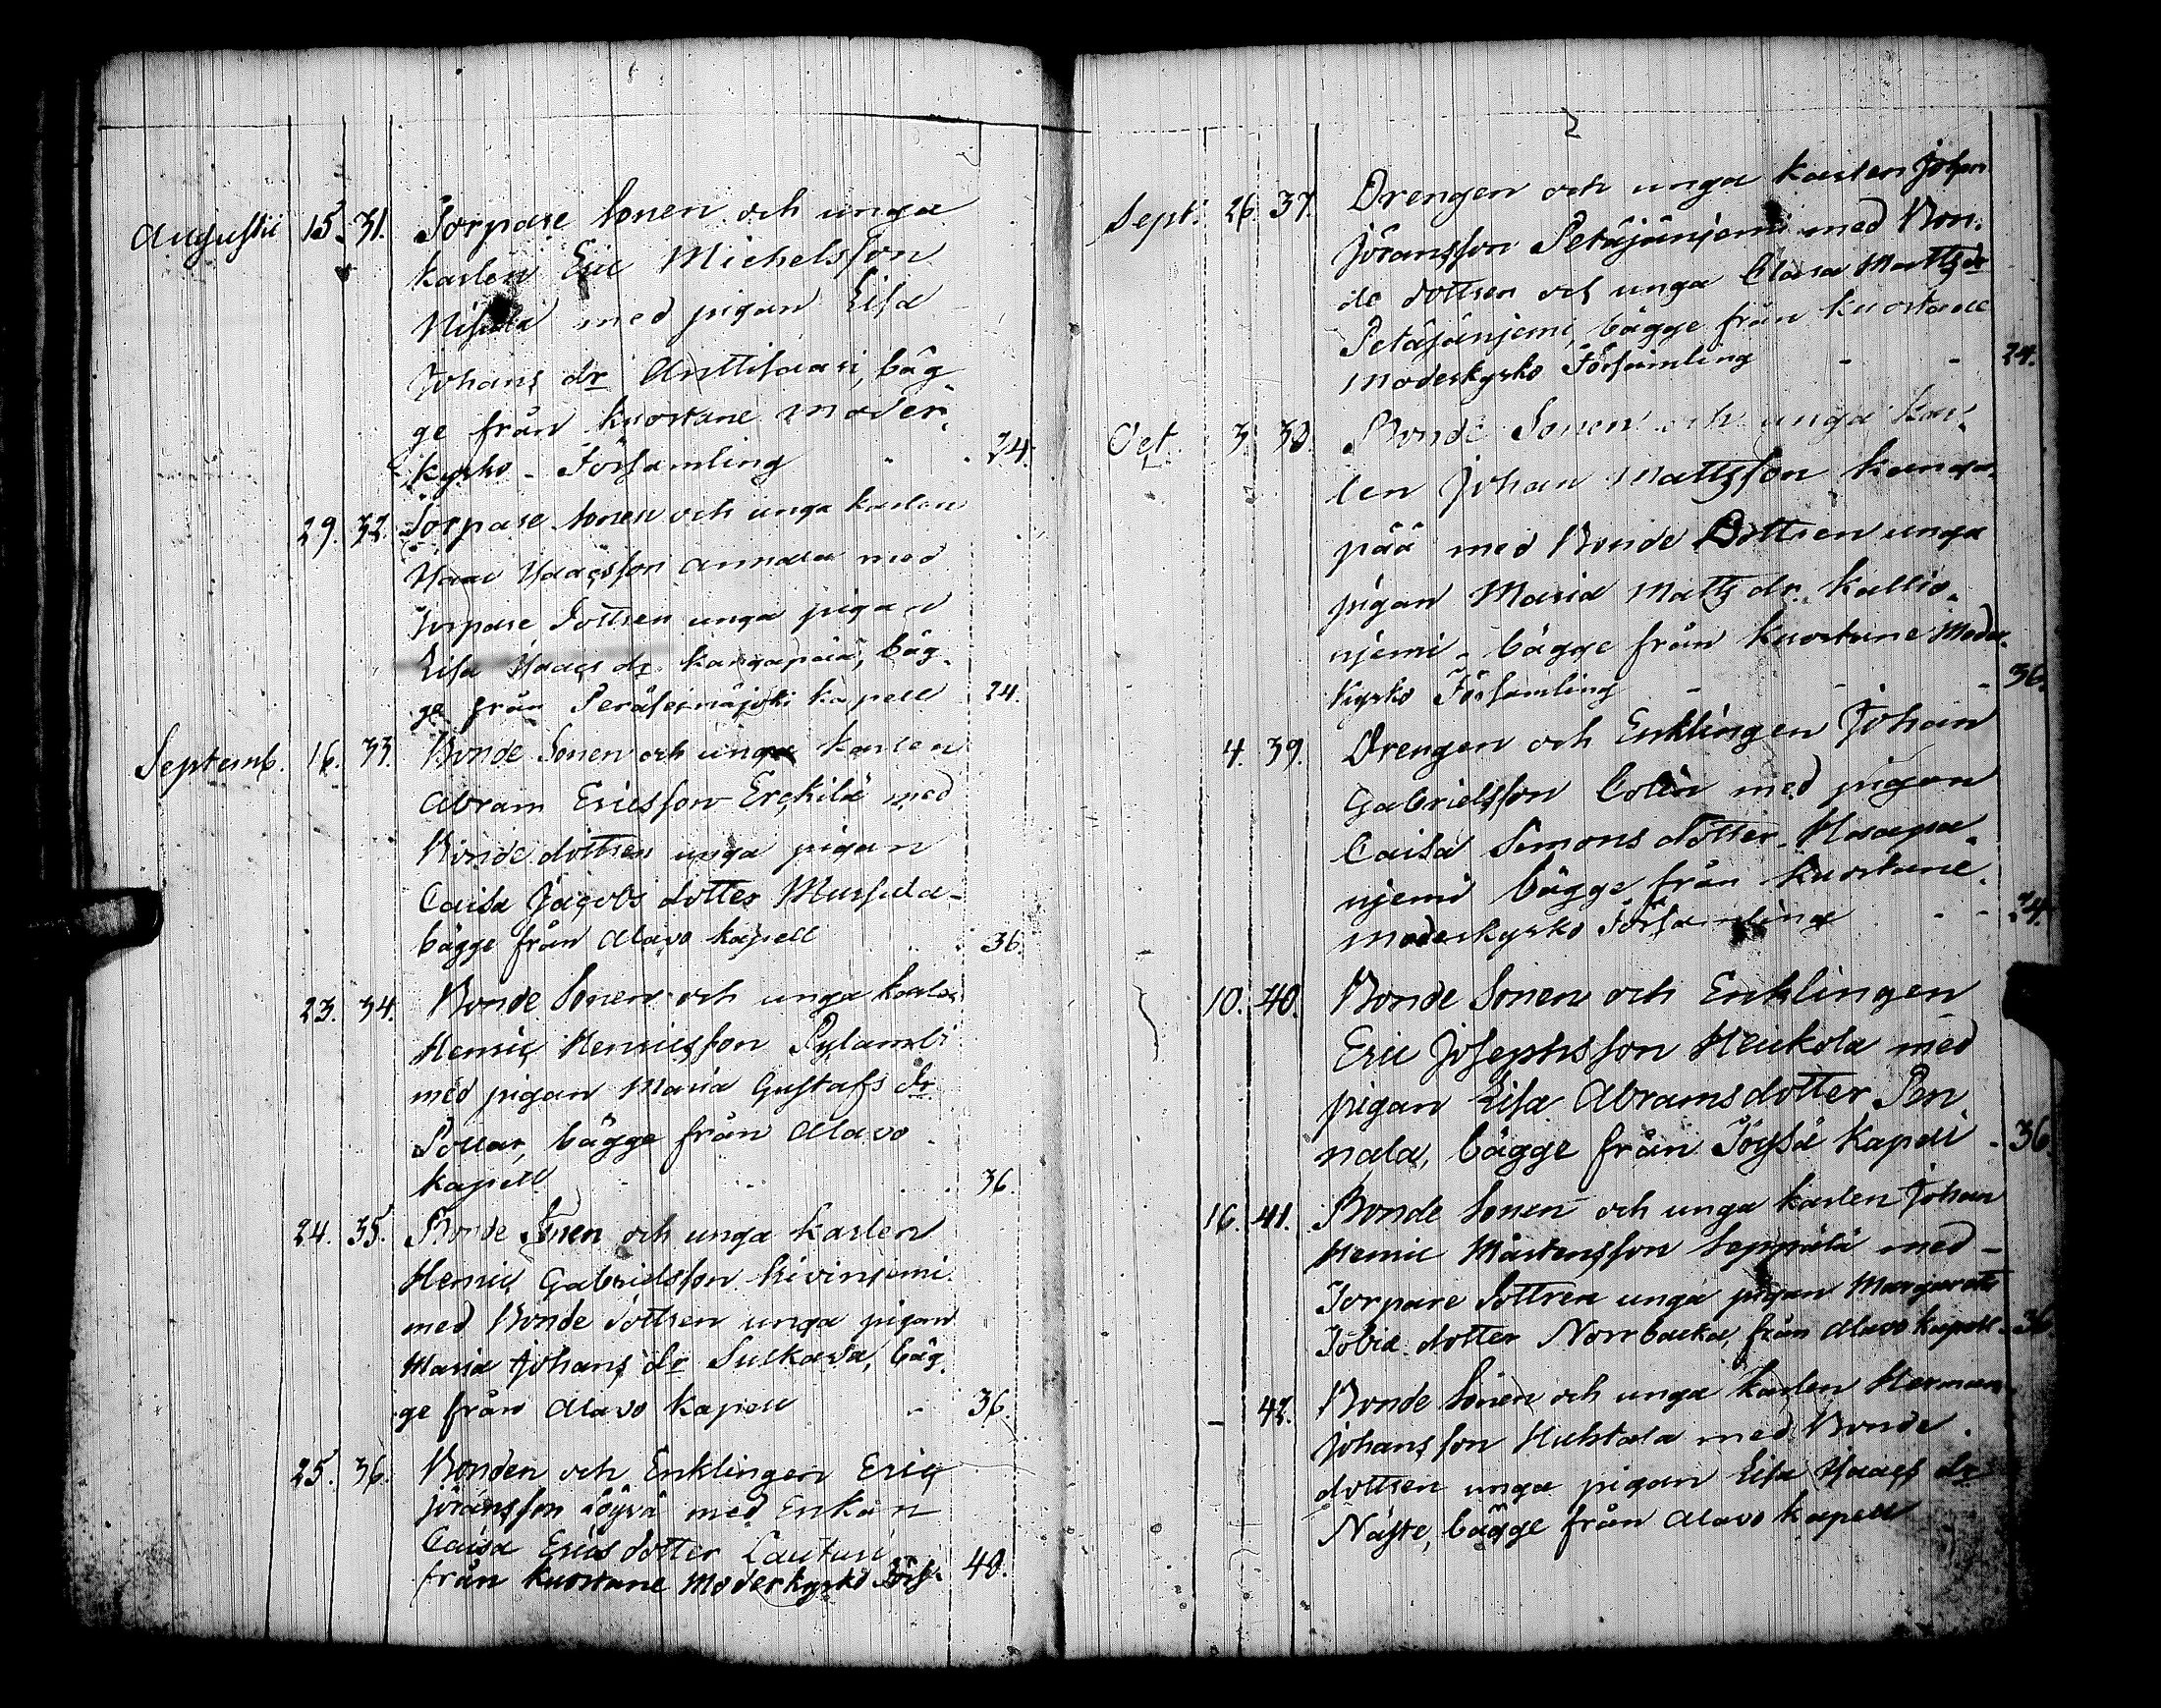 Augustii 15. 31. Torpare Sonen och unga
karlen Eric Michelsson
med pigan Lisa
Johans dr Anttisaari, båg
ge från Kuortane moder
kyrko-Församling 24.
29. 32. Torpare Sonen och unga karlen
Isaac Isacsson Annala med
Torpare Dottren unga pigan
Lisa Isaacs dr Kangapää, båg
ge från Peräseinäjoki kapell 24.
Septemb. 16. 33. Bonde Sonen och unga karlen
Abram Ericsson Erckilä med
Bonde dottren unga pigan
Caisa Jacobs dotter
bägge från Alavo kapell 36.
23. 34. Bonde Sonen och unga karlen
Henric Henricsson
med pigan Maria Gustafs dr
Pollar, bägge från Alavo
kapell 36.
24. 35. Bonde Sonen och unga karlen
Henric Gabrielsson Kivinjemi
med Bonde Dottren unga pigan
Maria Johans dr Sulkava, båg
ge från Alavo kapell 36.
25. 36. Bonden och Enklingen Eric
Jöransson med Enkan
Caisa Erics dotter
från Kuortane Moderkyrko Förs. 40.
Sept. 26. 37. Drengen och unga karlen Johan
Jöransson Petäjänjemi med Bon-
de dottren och unga Clara Matts dr
Petäjänjemi, bägge från Kuortane
Moderkyrko Församling - - 24.
Oct. 3. 38. Bonde Sonen och unga kar-
len Johan Mattsson Kanga-
pää med Bonde Dottren unga
pigan Maria Matts dr. Kallio-
njemi - bägge från Kuortane Moder-
kyrko Församling - - - 36.
4. 39. Drengen och Enklingen Johan
Gabrielsson Colin med pigan
Caisa Simons dotter Haapa
njemi bägge från Kuortane
Moderkyrko Församling - - 24.
10. 40. Bonde Sonen och Enklingen
Eric Josephsson Heickola med
pigan Lisa Abramsdotter Pen
nala, bägge från Töysä kapell - 36.
16. 41. Bonde Sonen och unga karlen Johan
Henric Mårtensson Seppälä med -
Torpare Dottren unga pigan Margareta
Tobia dotter Norrbacka, från Alavo kapell - 36
- 42. Bonde Sonen och unga karlen Herman
Johansson Huhtala med Bonde
dottren unga pigan Lisa Isaacs dr
Näste, bägge från Alavo kapell